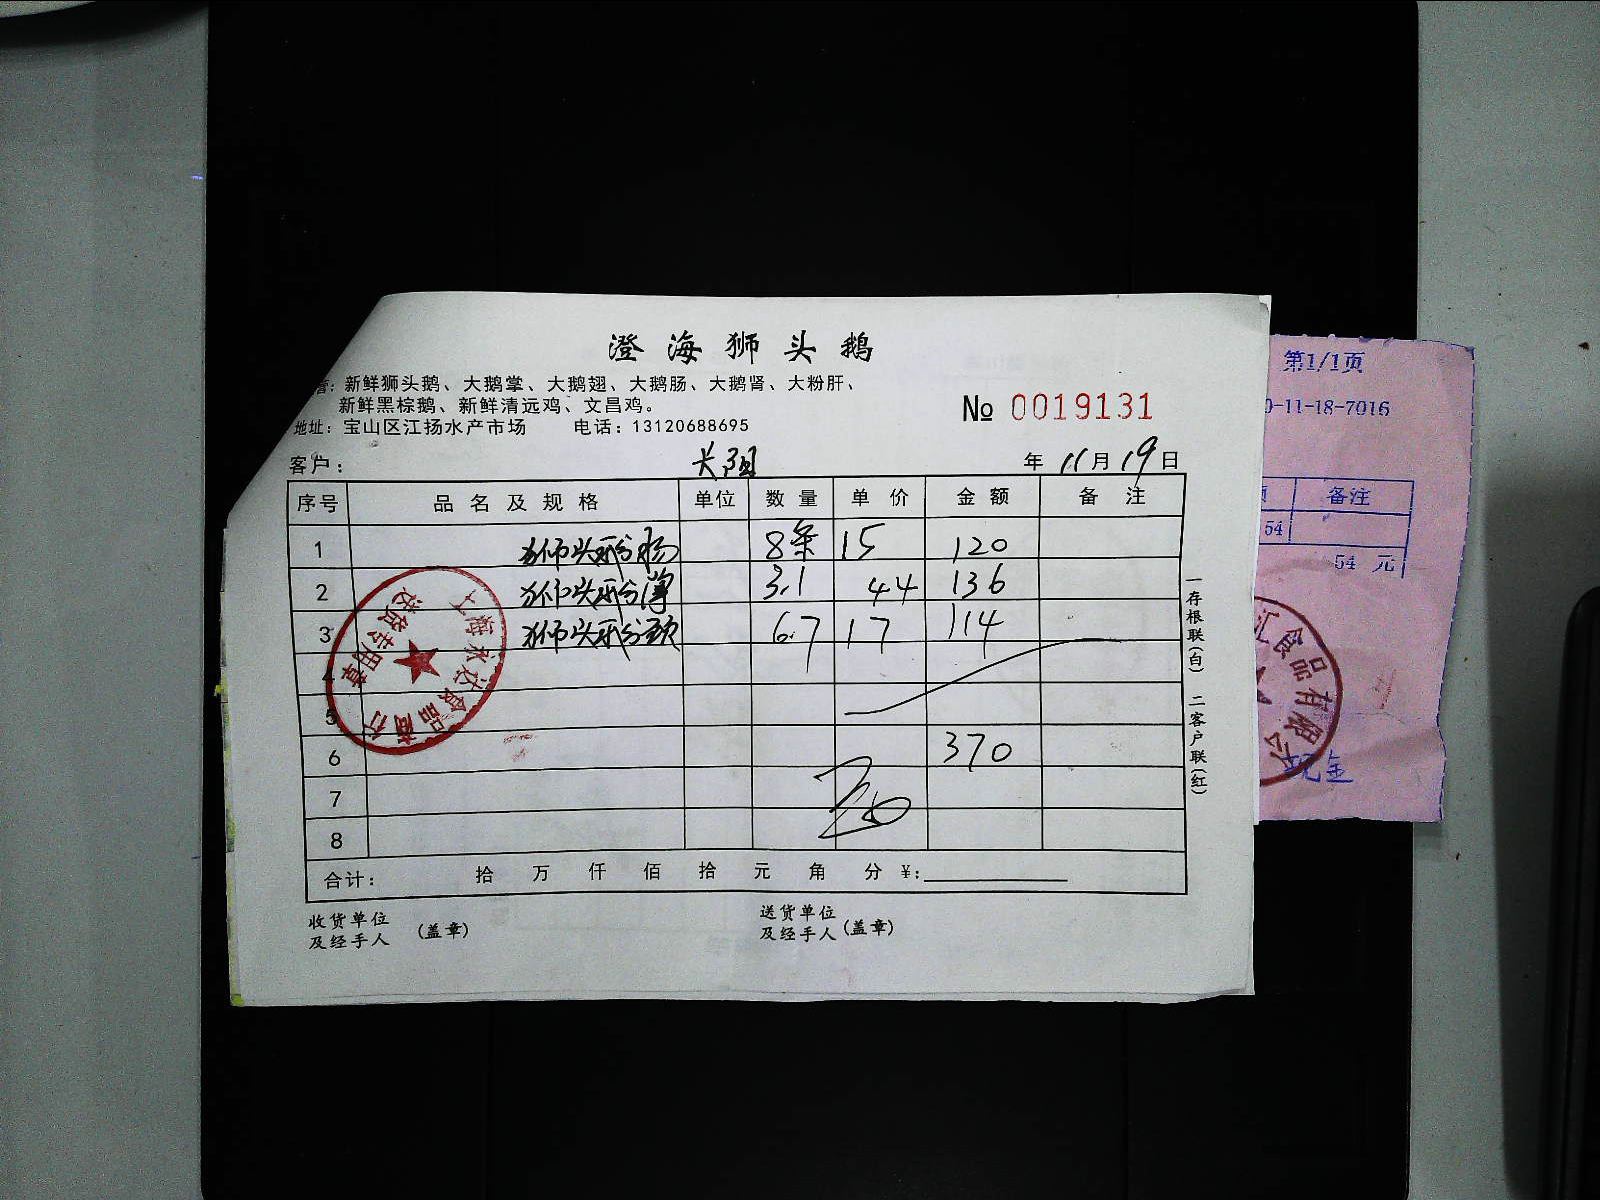 澄海狮头鹅
营：新鲜狮头鹅、大鹅掌、大鹅翅、大鹅肠、大鹅肾、大粉肝、
新鲜黑棕鹅、新鲜清远鸡、文昌鸡。
地址：宝山区江扬水产市场 电话：13120688695
№ 0019131
客户： 长阳 年 11 月 19 日
序号 品名及规格 单位 数量 单价 金额 备注
1 狮头鹅肠 8条 15 120
2 狮头鹅 3.1 44 136
3 狮头鹅颈 6.7 17 114
4
5
6 370
7
8
合计： 拾 万 仟 佰 拾 元 角 分 ¥：
收货单位
及经手人 （盖章）
送货单位
及经手人（盖章）
一存根联（白） 二客户联（红）
上海永达食品商行
送货专用章
第1/1页
0-11-18-7016
备注
54
54 元
汇食品有限公
现金